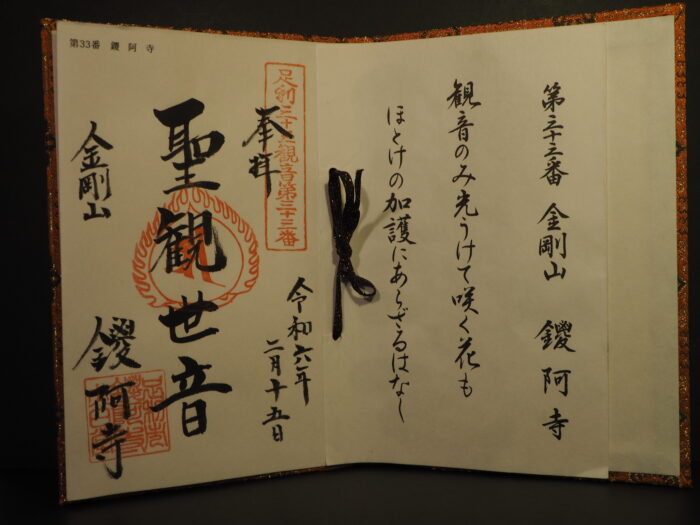 第三十三番 金剛山 鑁阿寺
観音のみ光うけて咲く花も
ほとけの加護にあらざるはなし
足利三十三観音第三十三番
奉拝
令和六年
二月十五日
聖観世音
金剛山
鑁阿寺
第33番 鑁阿寺